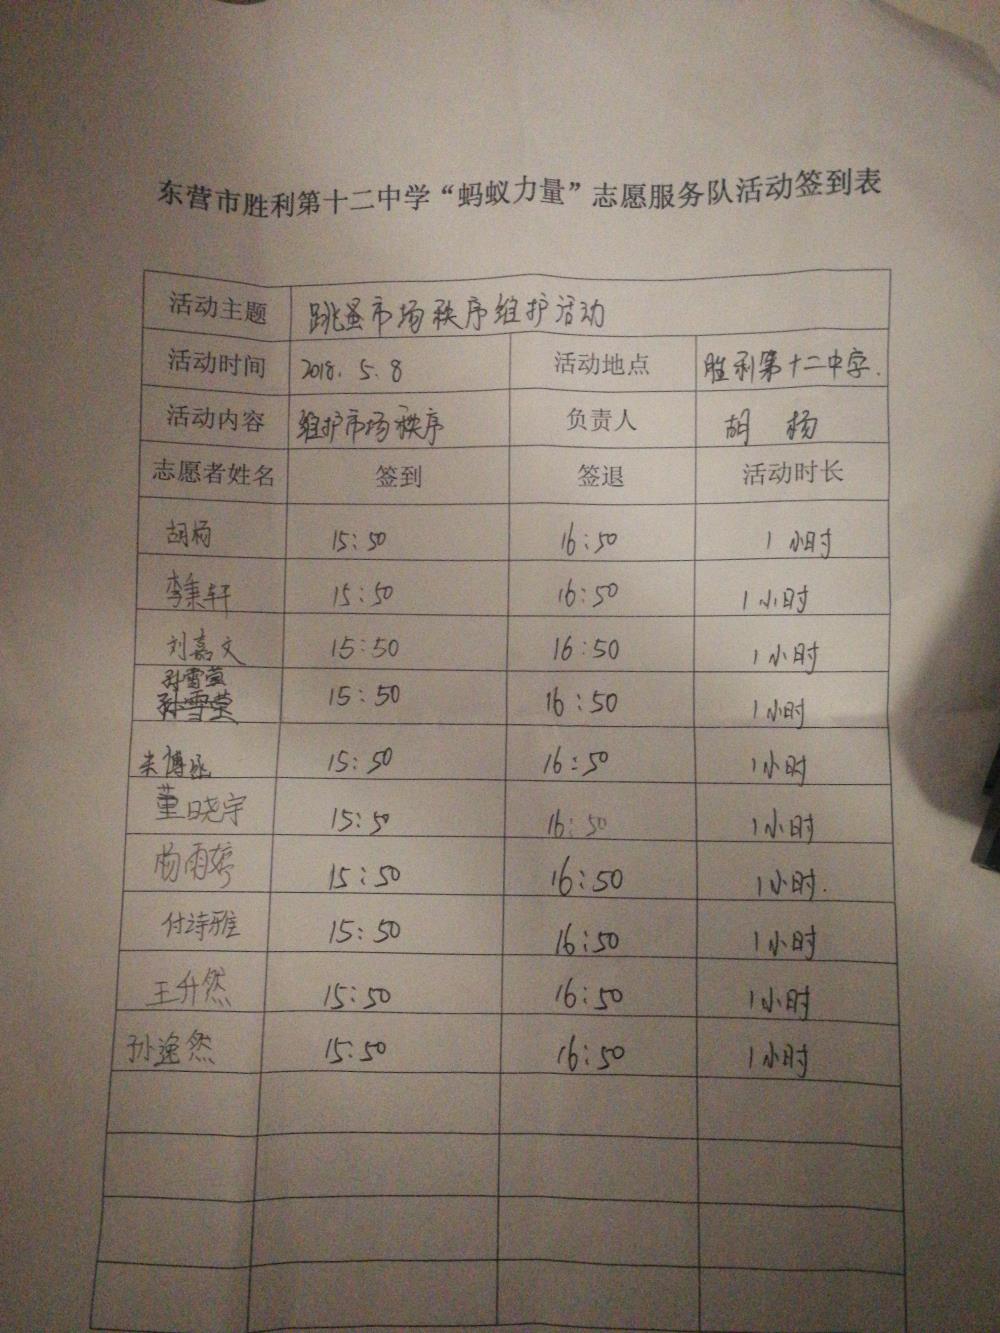 东营市胜利第十二中学“蚂蚁力量”志愿服务队活动签到表
活动主题 跳蚤市场秩序维护活动
活动时间 2018.5.8 活动地点 胜利第十二中学.
活动内容 维护市场秩序 负责人 胡杨
志愿者姓名 签到 签退 活动时长
胡杨 15:50 16:50 1小时
李秉轩 15:50 16:50 1小时
刘嘉文 15:50 16:50 1小时
孙雪萱
15:50 16:50 1小时
15:50 16:50 1小时
董晓宇 15:50 16:50 1小时
杨雨婷 15:50 16:50 1小时.
付诗雅 15:50 16:50 1小时
王升然 15:50 16:50 1小时
孙逸然 15:50 16:50 1小时